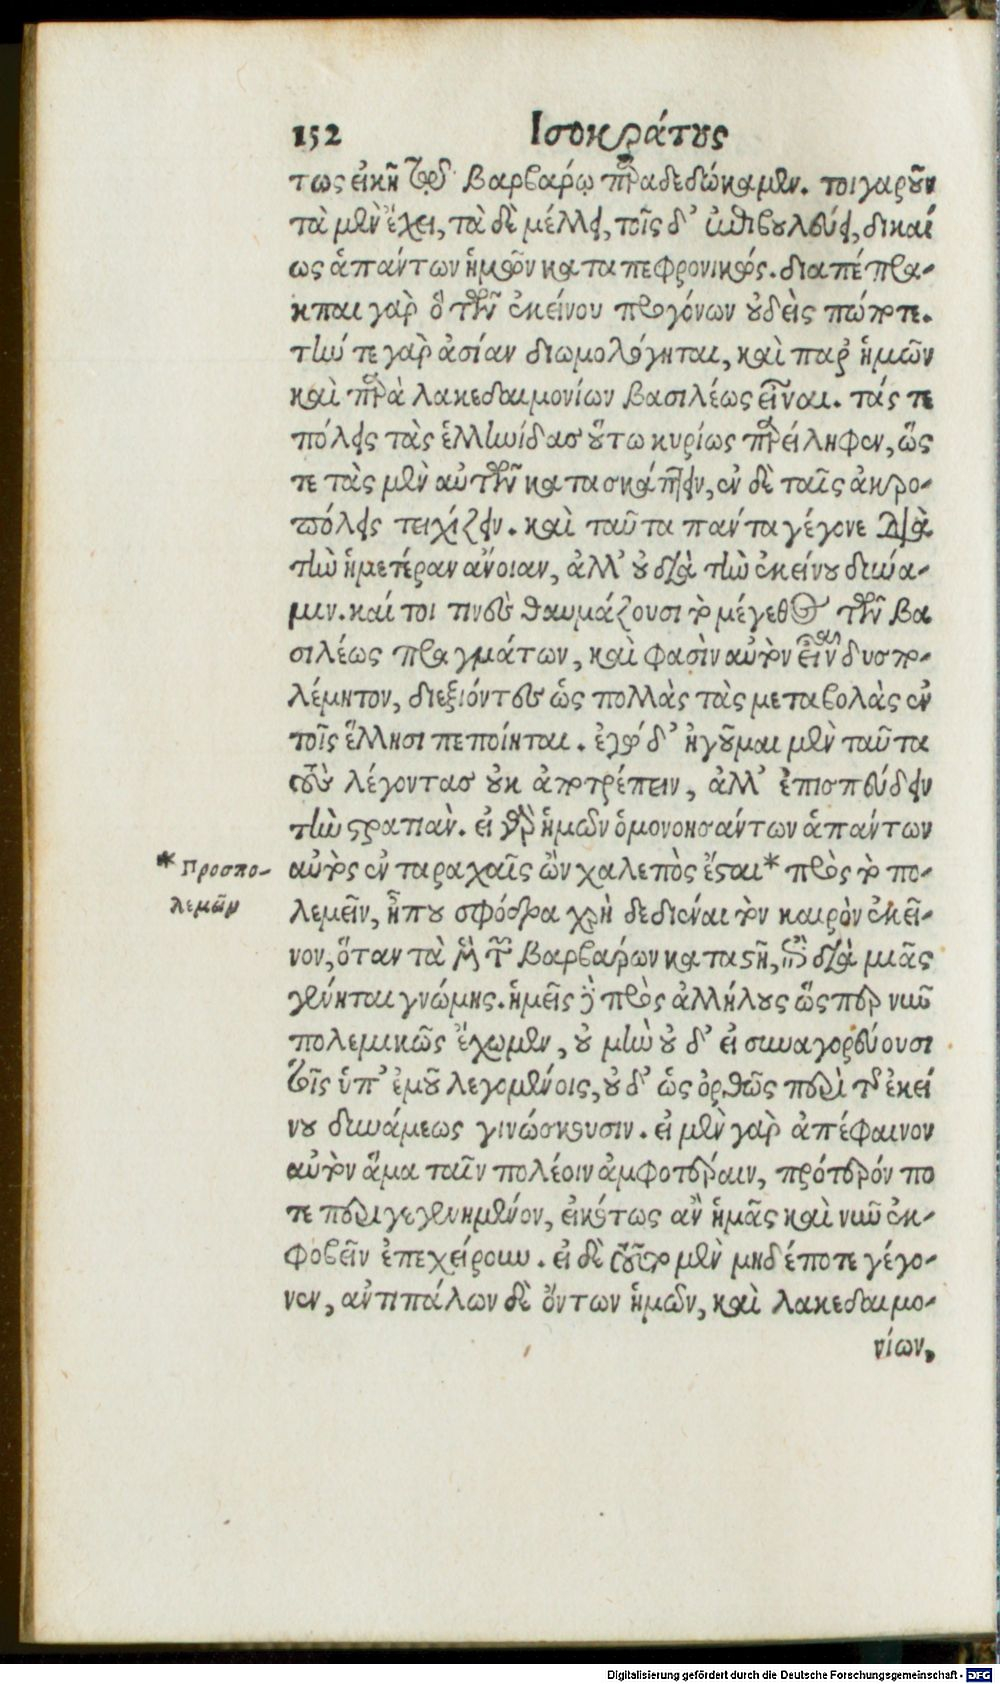 152 Ισοκράτους
τως εἰκῆ τῷ βαρβάρῳ παραδεδώκαμεν. τοιγαροῦν
τὰ μὲν ἔχει, τὰ δὲ μέλλει, τοῖς δ' ἐπιβουλεύει, δικαί
ως ἁπάντων ἡμῶν καταπεφρονικώς. διαπέπρα-
κται γὰρ ὃ τῶν ἐκείνου προγόνων οὐδεὶς πώποτε.
τήν τε γὰρ ἀσίαν διωμολόγηται, καὶ παρ' ἡμῶν
καὶ παρὰ λακεδαιμονίων βασιλέως εἶναι. τάς τε
πόλεις τὰς ἑλληνίδας οὕτω κυρίως παρείληφεν, ὥς
τε τὰς μὲν αὐτῶν κατασκάπτειν, ἐν δὲ ταῖς ἀκρο-
πόλεις τειχίζειν. καὶ ταῦτα πάντα γέγονε διὰ
τὴν ἡμετέραν ἄνοιαν, ἀλλ' οὐ διὰ τὴν ἐκείνου δύνα-
μιν. καί τοι τινὲς θαυμάζουσι τὸ μέγεθος τῶν βα
σιλέως πραγμάτων, καὶ φασὶν αὐτὸν εἶναι δυσπο-
λέμητον, διεξιόντες ὡς πολλὰς τὰς μεταβολὰς ἐν
τοῖς ἕλλησι πεποίηται. ἐγὼ δ' ἡγοῦμαι μὲν ταῦτα
τοὺς λέγοντας οὐκ ἀποτρέπειν, ἀλλ' ἐπισπεύδειν
τὴν στρατιὰν. εἰ γὰρ ἡμῶν ὁμονοησάντων ἁπάντων
αὐτὸς ἐν ταραχαῖς ὢν χαλεπὸς ἔσται* πρὸς τὸ πο-
λεμεῖν, ἦπου σφόδρα χρὴ δεδιέναι τὸν καιρὸν ἐκεῖ-
νον, ὅταν τὰ μὲν τῶν βαρβάρων καταστῇ, καὶ διὰ μιᾶς
γένηται γνώμης. ἡμεῖς δὲ πρὸς ἀλλήλους ὥσπερ νῦν
πολεμικῶς ἔχωμεν, οὐ μὴν οὐ δ' εἰ συναγορεύουσι
τοῖς ὑπ' ἐμοῦ λεγομένοις, οὐ δ' ὡς ὀρθῶς περὶ τῆς ἐκεί
νου δυνάμεως γινώσκουσιν. εἰ μὲν γὰρ ἀπέφαινον
αὐτὸν ἅμα ταῖν πολέοιν ἀμφοτέραιν, πρότερόν πο
τε περιγεγενημένον, εἰκότως ἂν ἡμᾶς καὶ νῦν ἐκ-
φοβεῖν ἐπεχείρουν. εἰ δὲ τοῦτο μὲν μηδέποτε γέγο-
νεν, ἀντιπάλων δὲ ὄντων ἡμῶν, καὶ λακεδαιμο-
νίων,
* Προσπο-
λεμῶν
Digitalisierung gefördert durch die Deutsche Forschungsgemeinschaft - DFG